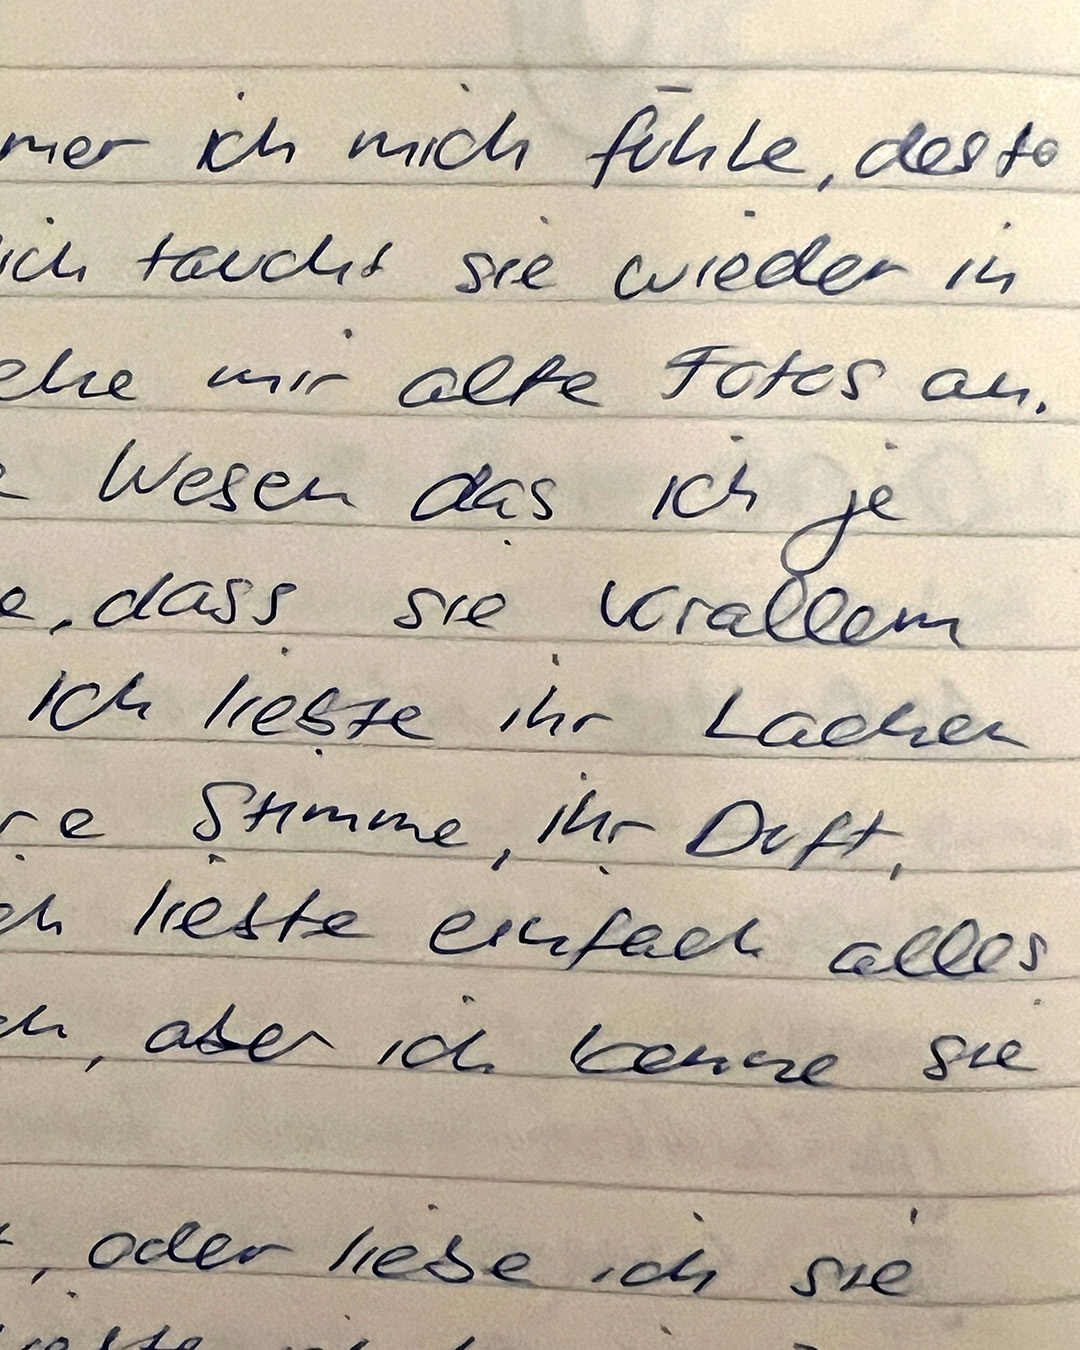 mer ich mich fühle, desto
ich taucht sie wieder in
ehe mir alte Fotos an.
Wesen das ich je
e, dass sie vorallem
Ich liebte ihr Lachen
re Stimme, ihr Duft,
ch liebte einfach alles
ch, aber ich kenne sie
, oder liebe ich sie